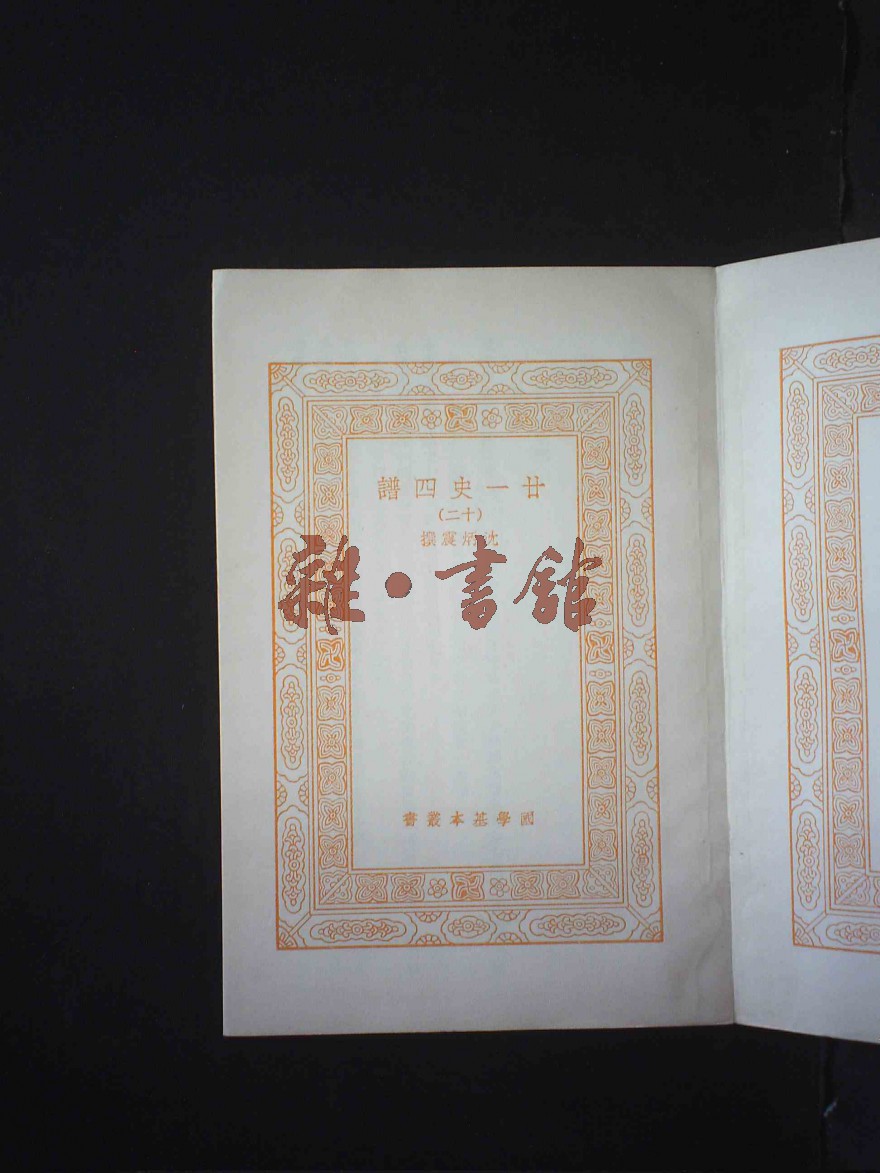 廿一史四譜
(十二)
沈炳震撰
雜·書館
國學基本叢書